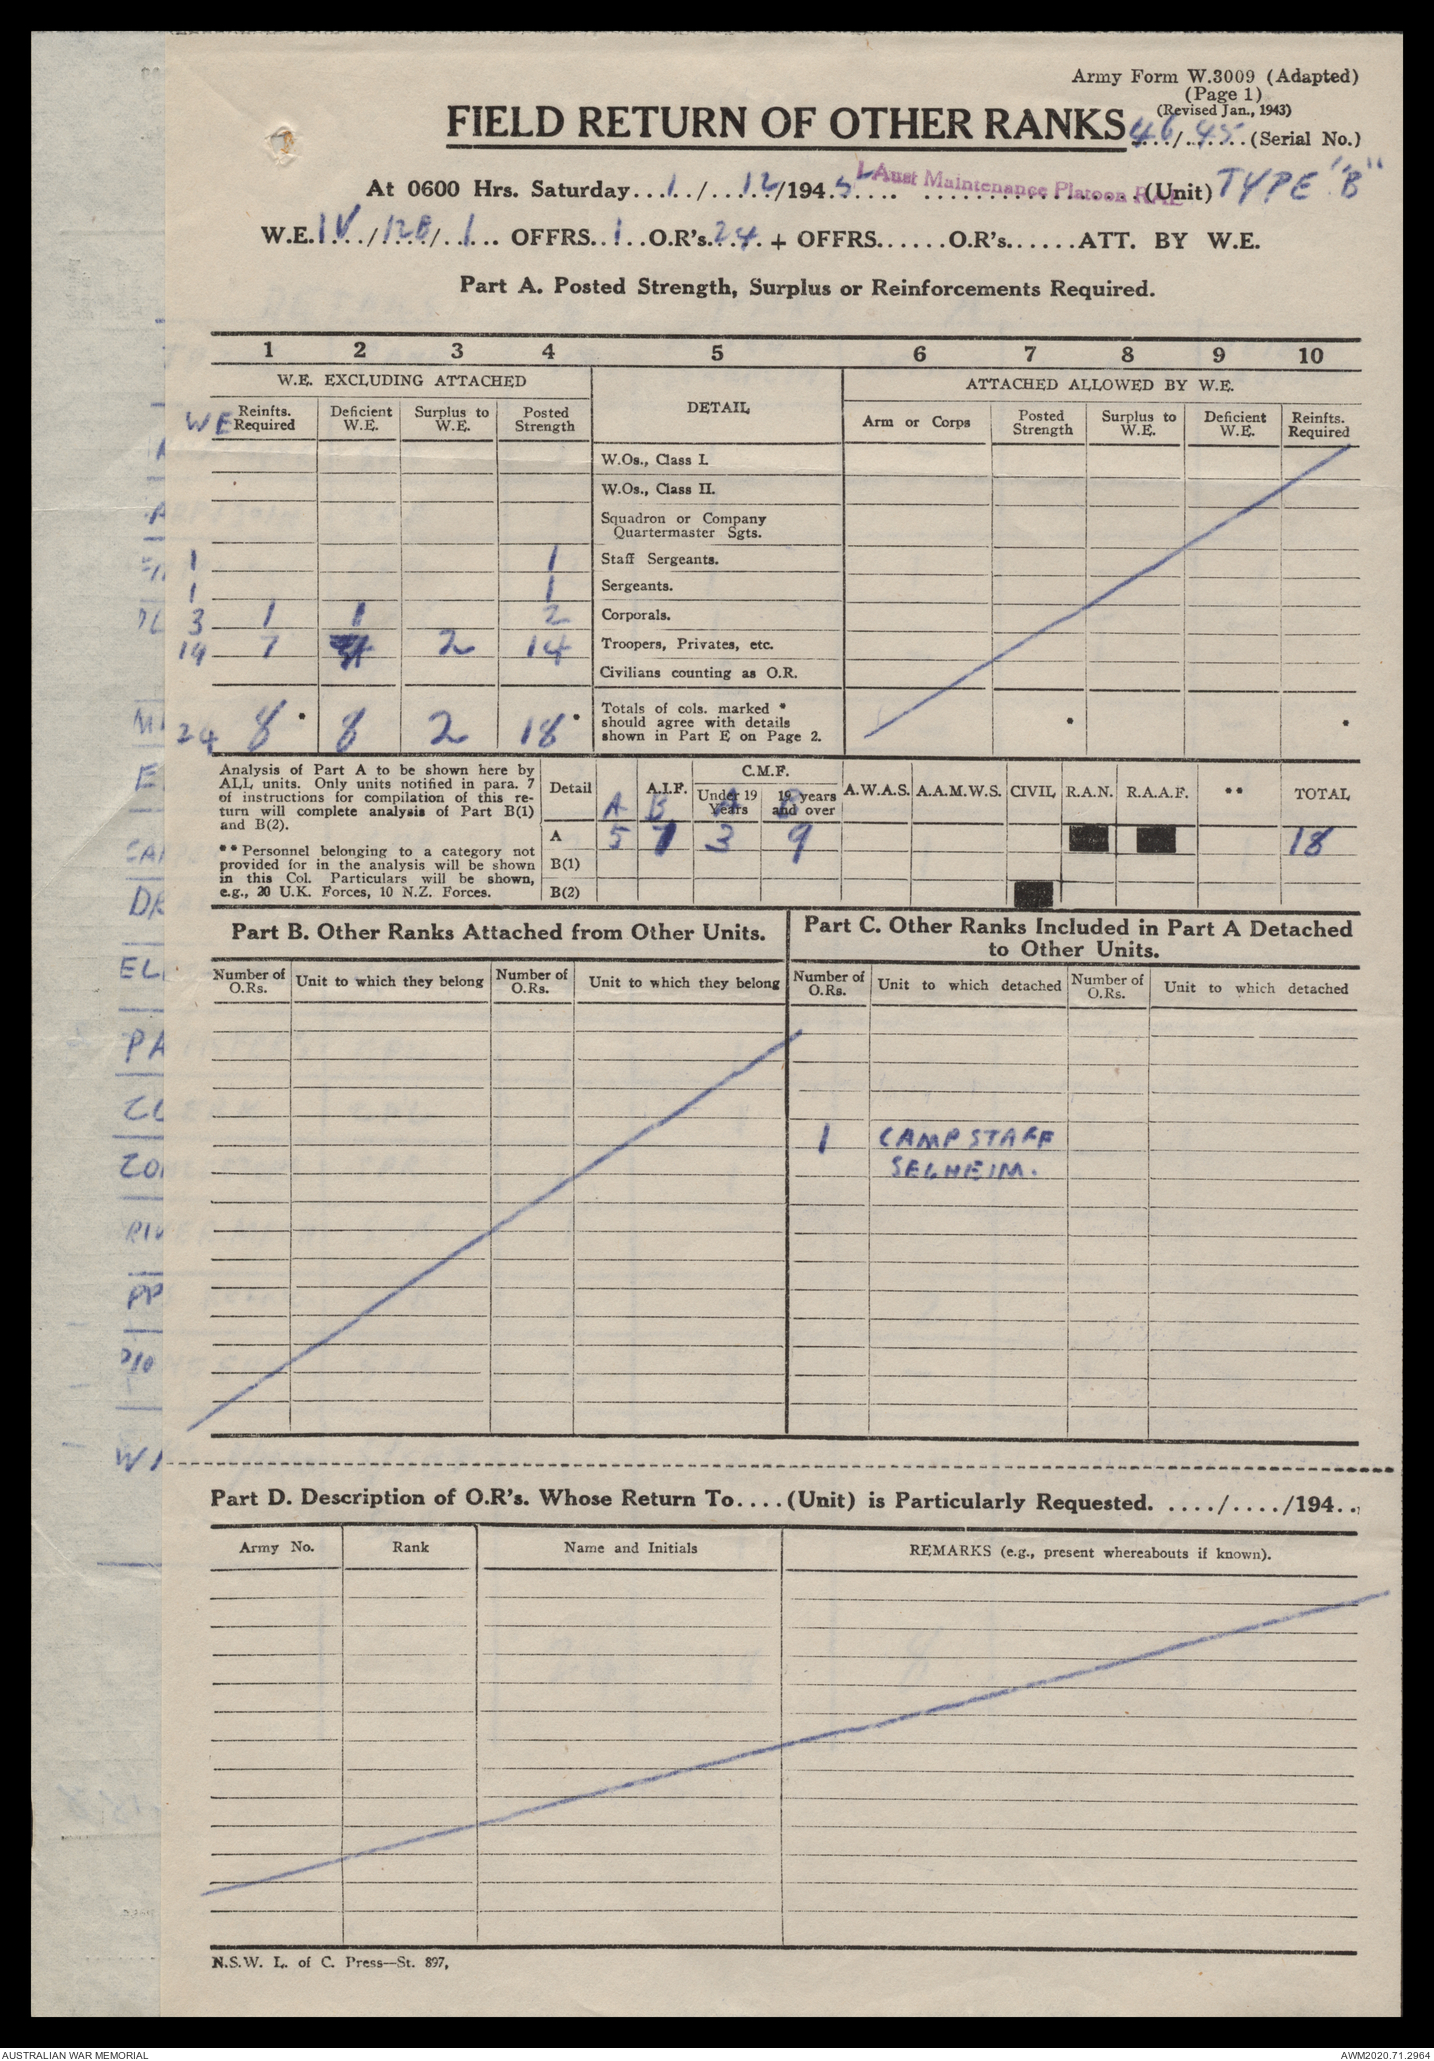 Army Form W.3009 (Adapted)
(Page 1)
(Revised Jan., 1943)
FIELD RETURN OF OTHER RANKS 46/45 (Serial No.)
At 0600 Hrs. Saturday...1../...12/1945.... 1 Aust Maintenance Platoon RAE (Unit) TYPE "B"
W.E. IV/12B/1... OFFRS..1..O.R's.24. + OFFRS......O.R's......ATT. BY W.E.
Part A. Posted Strength, Surplus or Reinforcements Required.
1 2 3 4 5 6 7 8 9 10
W.E. EXCLUDING ATTACHED DETAIL ATTACHED ALLOWED BY W.E.
WE Reinfts. Required Deficient W.E. Surplus to W.E. Posted Strength Arm or Corps Posted Strength Surplus to W.E. Deficient W.E. Reinfts. Required
W.Os., Class I.
W.Os., Class II.
Squadron or Company
Quartermaster Sgts.
1 1 Staff Sergeants.
1 1 Sergeants.
3 1 1 2 Corporals.
19 7 2 14 Troopers, Privates, etc.
Civilians counting as O.R.
24 8 * 8 2 18 * Totals of cols. marked *
should agree with details
shown in Part E on Page 2. * *
Analysis of Part A to be shown here by
ALL units. Only units notified in para. 7
of instructions for compilation of this re-
turn will complete analysis of Part B(1)
and B(2).
** Personnel belonging to a category not
provided for in the analysis will be shown
in this Col. Particulars will be shown,
e.g., 20 U.K. Forces, 10 N.Z. Forces.
Detail A.I.F. C.M.F. A.W.A.S. A.A.M.W.S. CIVIL R.A.N. R.A.A.F. ** TOTAL
Under 19 Years 19 years and over
A B A B
A 5 1 3 9 18
B(1)
B(2)
Part B. Other Ranks Attached from Other Units.
Number of O.Rs. Unit to which they belong Number of O.Rs. Unit to which they belong
Part C. Other Ranks Included in Part A Detached
to Other Units.
Number of O.Rs. Unit to which detached Number of O.Rs. Unit to which detached
1 CAMP STAFF
SELHEIM.
Part D. Description of O.R's. Whose Return To....(Unit) is Particularly Requested. ..../..../194..
Army No. Rank Name and Initials REMARKS (e.g., present whereabouts if known).
N.S.W. L. of C. Press—St. 897,
AUSTRALIAN WAR MEMORIAL AWM2020.71.2964